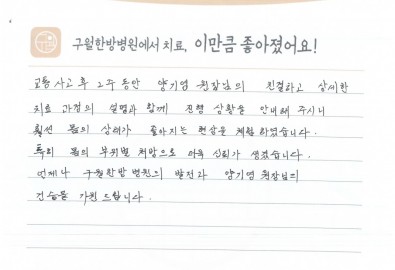 구월한방병원에서 치료, 이만큼 좋아졌어요!
교통사고 후 2주 동안 양기영 원장님의 친절하고 상세한
치료 과정의 설명과 함께 진행 상황을 안내해 주시니
훨씬 몸의 상태가 좋아지는 현상을 체험 하였습니다.
특히 몸의 부위별 처방으로 더욱 신뢰가 생겼습니다.
언제나 구월한방 병원의 발전과 양기영 원장님의
건승을 기원 드립니다.